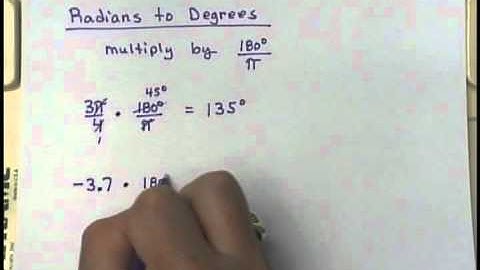 Radians to Degrees
multiply by 180°/π
3π/4 · 180°/π = 135°
45°
1
-3.7 · 180